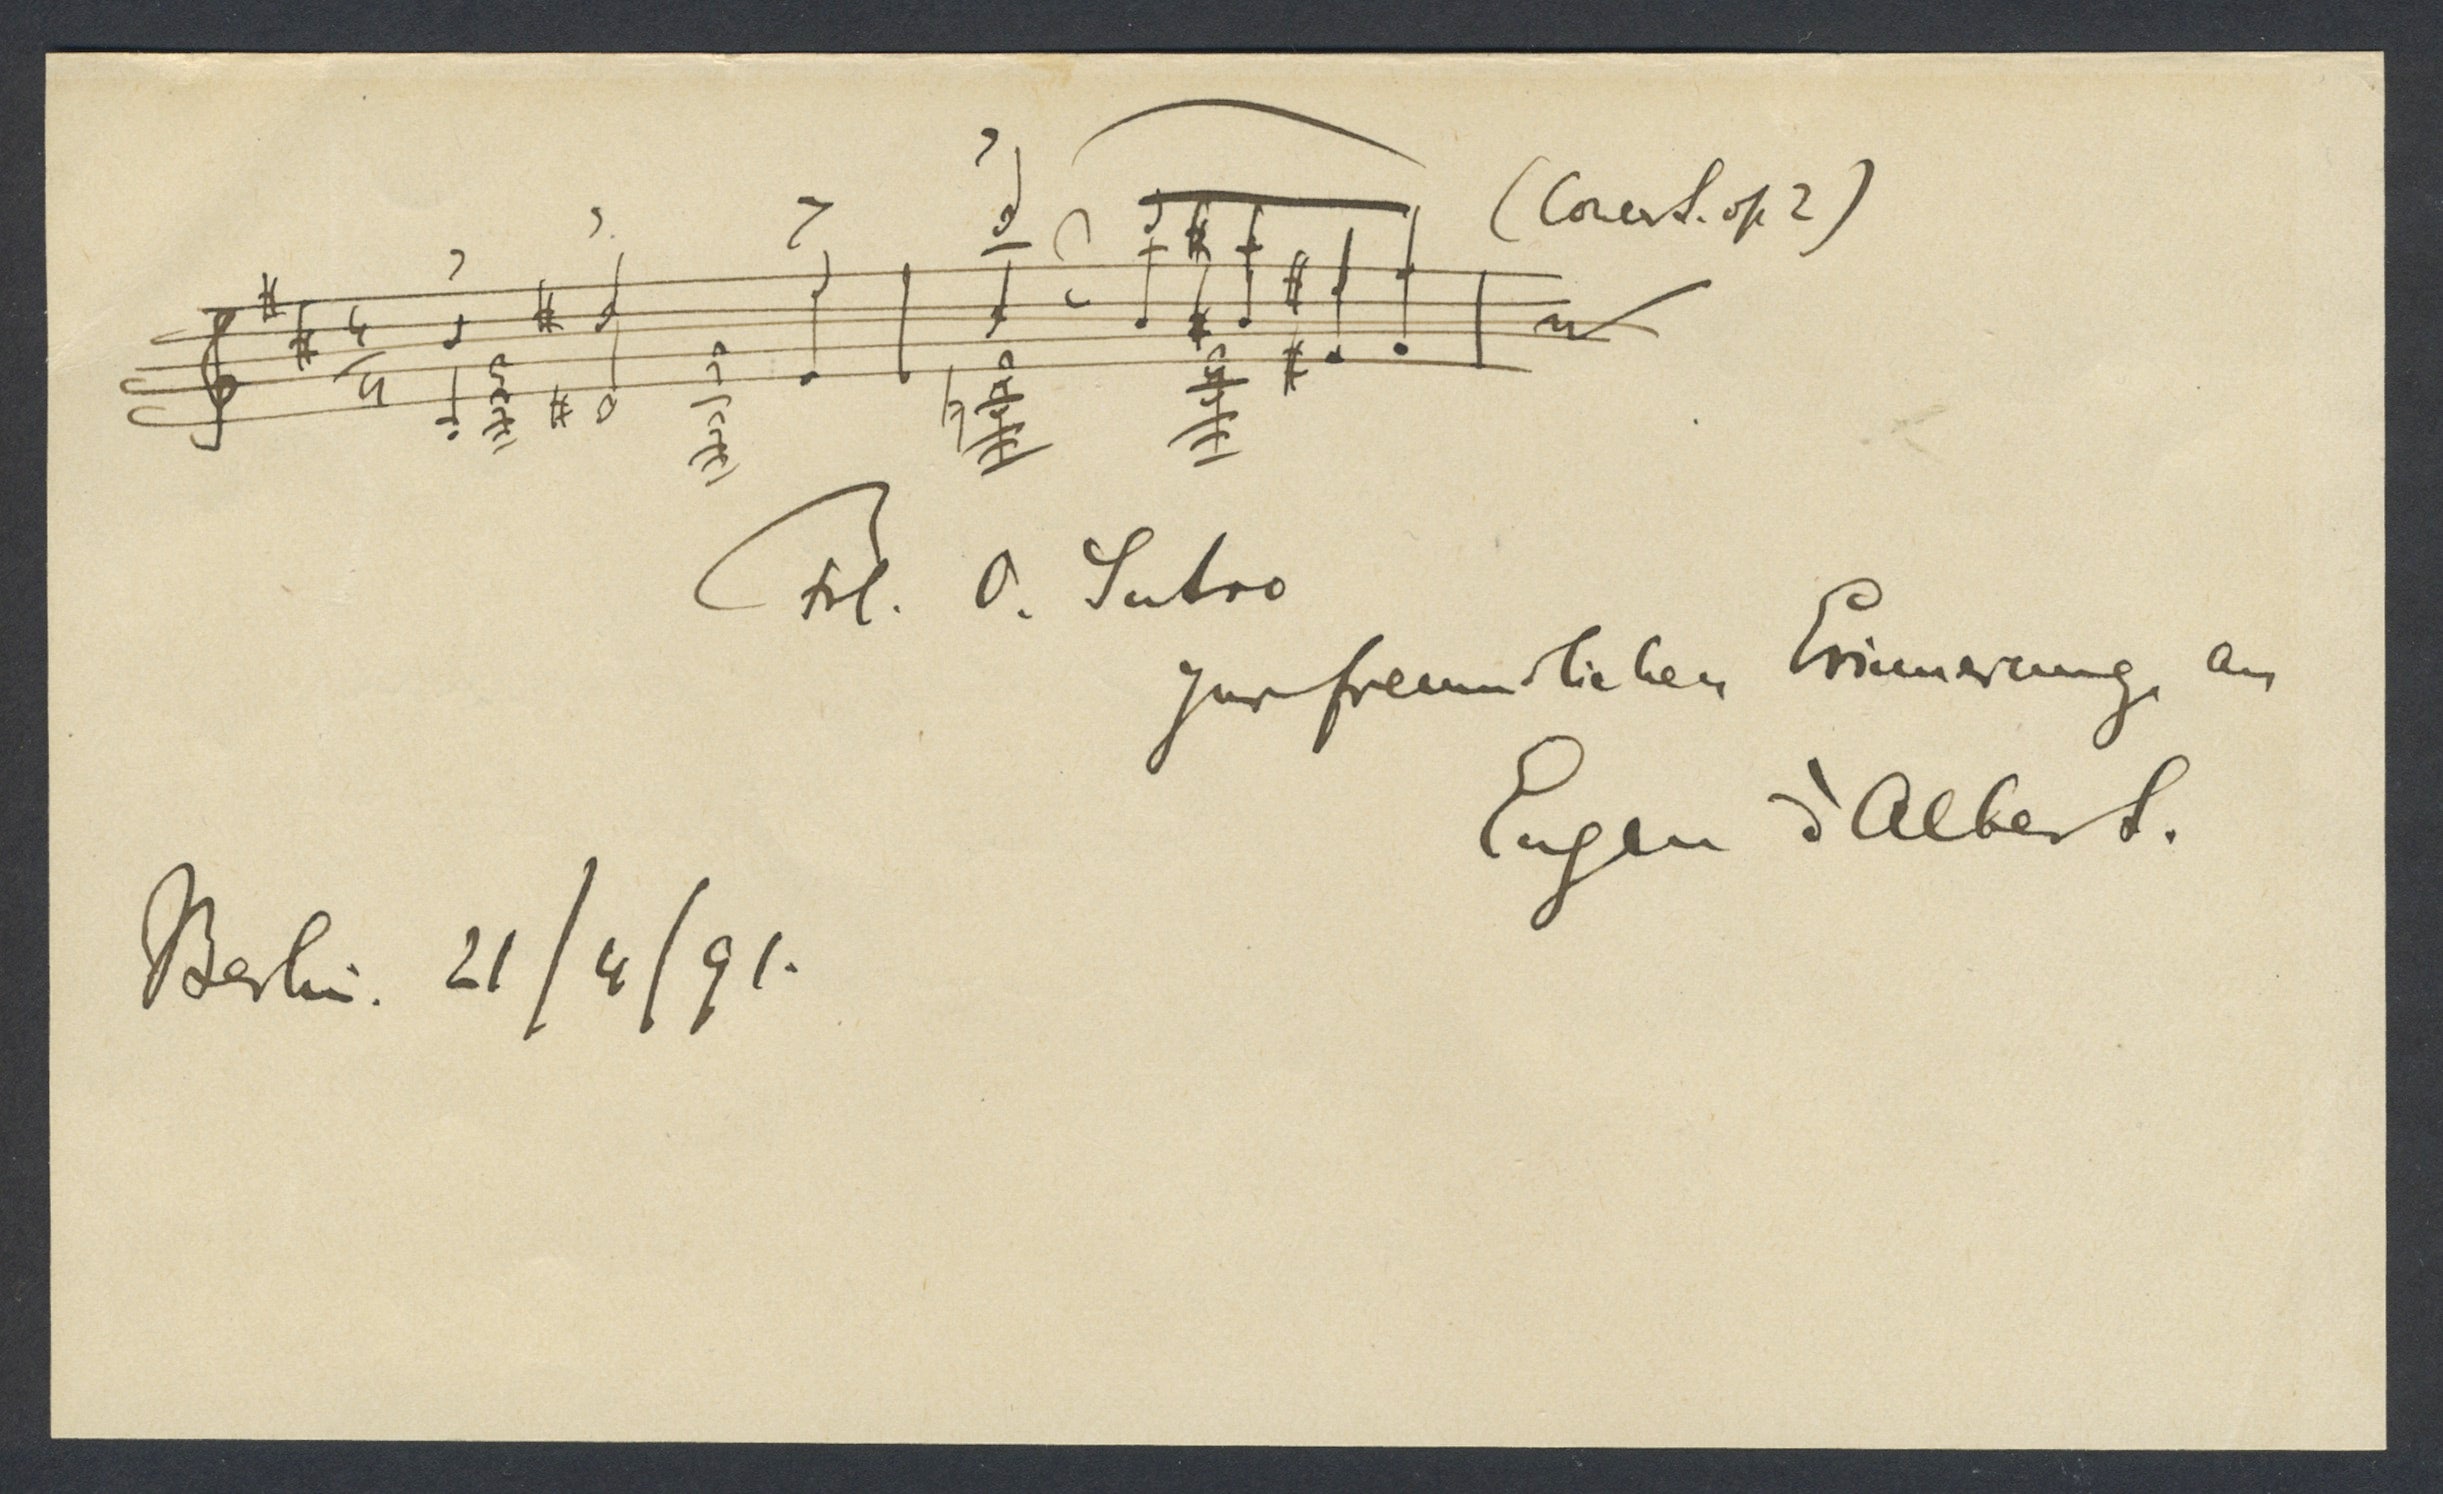 (Concert. op 2)
Frl. O. Sutro
zur freundlichen Erinnerung an
Eugen d'Albert.
Berlin. 21/4/91.